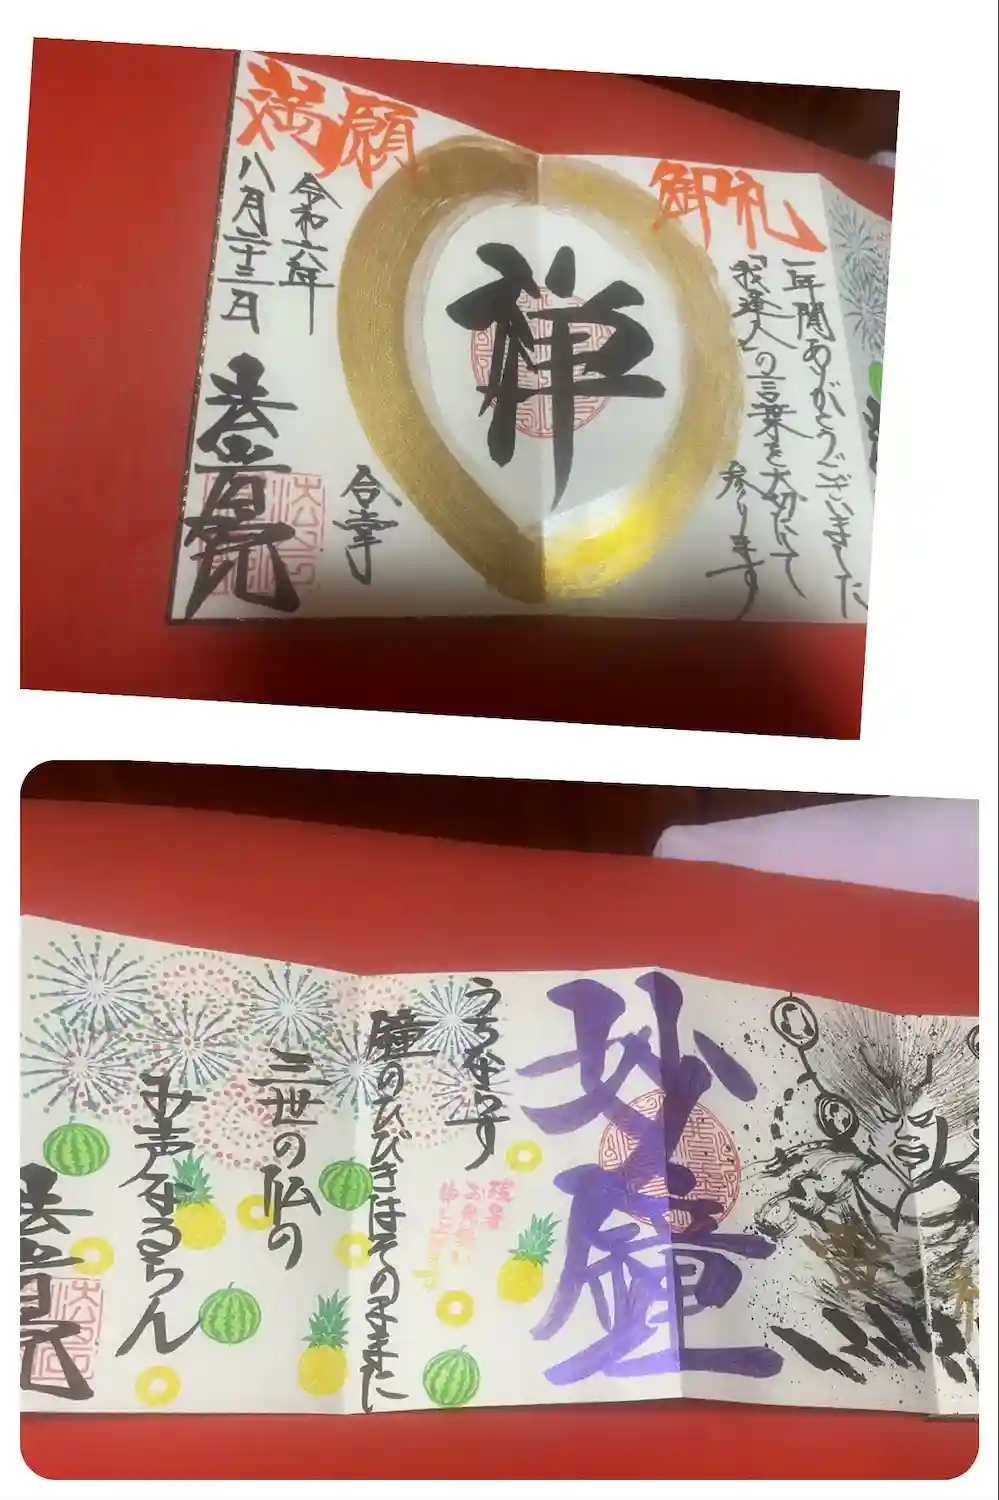 御礼
一年間ありがとうございました
「我逢人」の言葉を大切にして
参ります
禅
満願
令和六年
八月二十三日
合掌
妙鐘
うちならす
鐘のひびきはそのままに
三世の仏の
み声なるらん
残暑
お見舞い
申し上げます